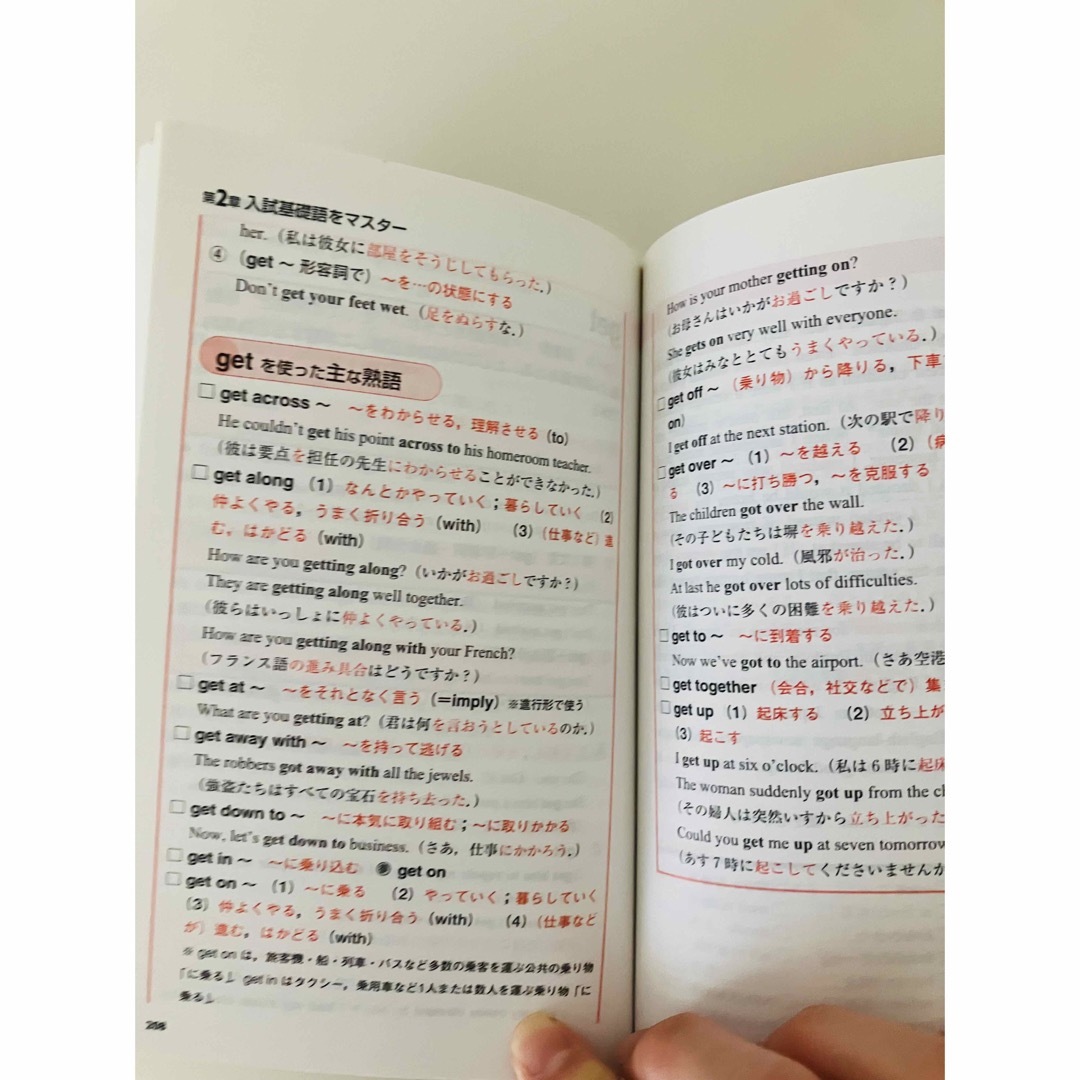 第2章 入試基礎語をマスター
her.（私は彼女に部屋をそうじしてもらった.）
④（get ～ 形容詞で）～を…の状態にする
Don't get your feet wet.（足をぬらすな.）
get を使った主な熟語
□ get across ～ ～をわからせる，理解させる (to)
He couldn't get his point across to his homeroom teacher.
（彼は要点を担任の先生にわからせることができなかった.）
□ get along (1) なんとかやっていく；暮らしていく (2)
仲よくやる，うまく折り合う (with) (3)（仕事など）進
む，はかどる (with)
How are you getting along?（いかがお過ごしですか？）
They are getting along well together.
（彼らはいっしょに仲よくやっている.）
How are you getting along with your French?
（フランス語の進み具合はどうですか？）
□ get at ～ ～をそれとなく言う（=imply）※進行形で使う
What are you getting at?（君は何を言おうとしているのか.）
□ get away with ～ ～を持って逃げる
The robbers got away with all the jewels.
（強盗たちはすべての宝石を持ち去った.）
□ get down to ～ ～に本気に取り組む；～に取りかかる
Now, let's get down to business.（さあ，仕事にかかろう.）
□ get in ～ ～に乗り込む get on
□ get on ～ (1) ～に乗る (2) やっていく；暮らしていく
(3) 仲よくやる，うまく折り合う (with) (4)（仕事など
が）進む，はかどる (with)
※ get on は，旅客機・船・列車・バスなど多数の乗客を運ぶ公共の乗り物
「に乗る」 get in はタクシー，乗用車など1人または数人を運ぶ乗り物「に
乗る」
208
How is your mother getting on?
（お母さんはいかがお過ごしですか？）
She gets on very well with everyone.
（彼女はみなととてもうまくやっている.）
□ get off ～ （乗り物）から降りる，下車
on)
I get off at the next station.（次の駅で降り
□ get over ～ (1) ～を越える (2)（病
る (3) ～に打ち勝つ，～を克服する
The children got over the wall.
（その子どもたちは塀を乗り越えた.）
I got over my cold.（風邪が治った.）
At last he got over lots of difficulties.
（彼はついに多くの困難を乗り越えた.）
□ get to ～ ～に到着する
Now we've got to the airport.（さあ空港
□ get together （会合，社交などで）集
□ get up (1) 起床する (2) 立ち上が
(3) 起こす
I get up at six o'clock.（私は6時に起床
The woman suddenly got up from the ch
（その婦人は突然いすから立ち上がった
Could you get me up at seven tomorrow
（あす7時に起こしてくださいませんか